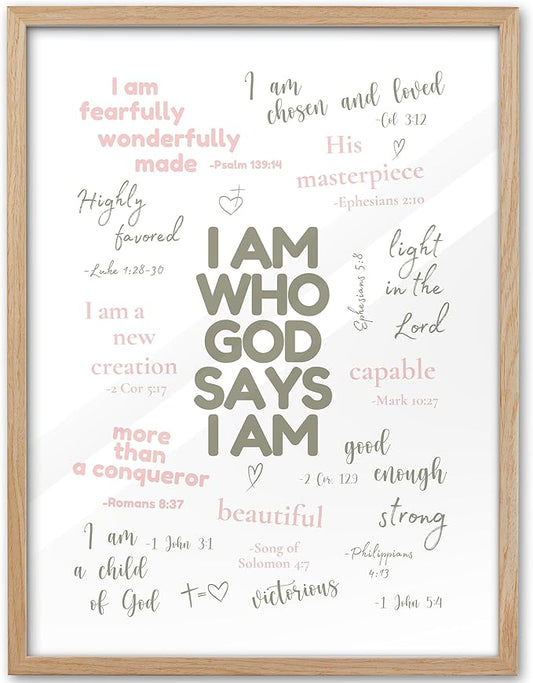 I am
fearfully
wonderfully
made -Psalm 139:14
I am
chosen and loved
-Col 3:12
His
masterpiece
-Ephesians 2:10
Highly
favored
-Luke 1:28-30
I AM
WHO
GOD
SAYS
I AM
Ephesians 5:8
light
in the
Lord
I am a
new
creation
-2 Cor 5:17
capable
-Mark 10:27
more
than
a conqueror
-Romans 8:37
good
enough
-2 Cor. 12:9
strong
-Philippians
4:13
beautiful
-Song of
Solomon 4:7
I am -1 John 3:1
a child
of God
victorious
-1 John 5:4